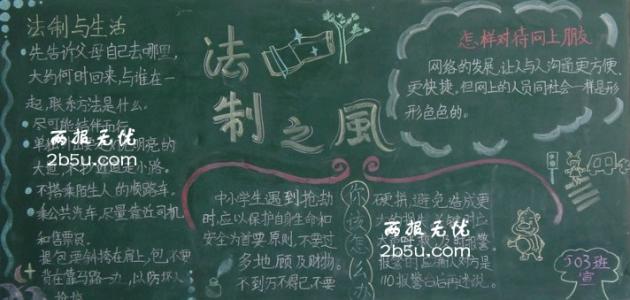 法制与生活
先告诉父母自己去哪里,
大约何时回来,与谁在一
起,联系方法是什么。
尽可能结伴而行
明亮的
大道,不抄近道走小路。
不搭乘陌生人的顺路车。
乘公共汽车,尽量靠近司机
和售票员。
提包要斜挎在肩上,包不要
背在靠马路一
抢抢
两报无优
2b5u.com
法
制之風
中小学生遇到抢劫
时应以保护自身生命和
安全为首要原则,不要过
多地顾及财物。
不到万不得已不要
你该怎么办
硬拼,避免造成更
报警
110报警台后再说话
两报无优
2b5u.com
怎样对待网上朋友
网络的发展,让人与人沟通更方便、
更快捷,但网上的人员同社会一样是形
形色色的。
503班
宣